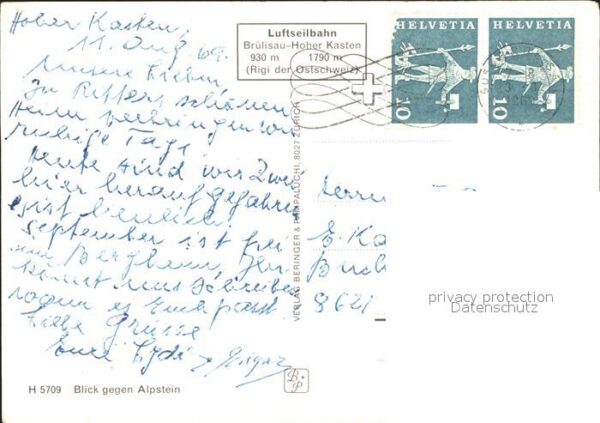 Hoher Kasten,
11. Aug. 69.
Unsere Lieben
Zu schönen
Heim verbringen wir
ruhige Tage
Heute sind wir zwei
hier herauf gefahren
es ist herrlich
September ist frei
im Bergheim, Ihr
könnt uns schreiben
wann es Euch passt
Liebe Grüsse
Eure
H 5709 Blick gegen Alpstein
Luftseilbahn
Brülisau-Hoher Kasten
930 m 1790 m
(Rigi der Ostschweiz)
HELVETIA
10
HELVETIA
10
VERLAG BERINGER & PAMPALUCHI, 8027 ZÜRICH
E. Ka
8621
privacy protection
Datenschutz
B+P